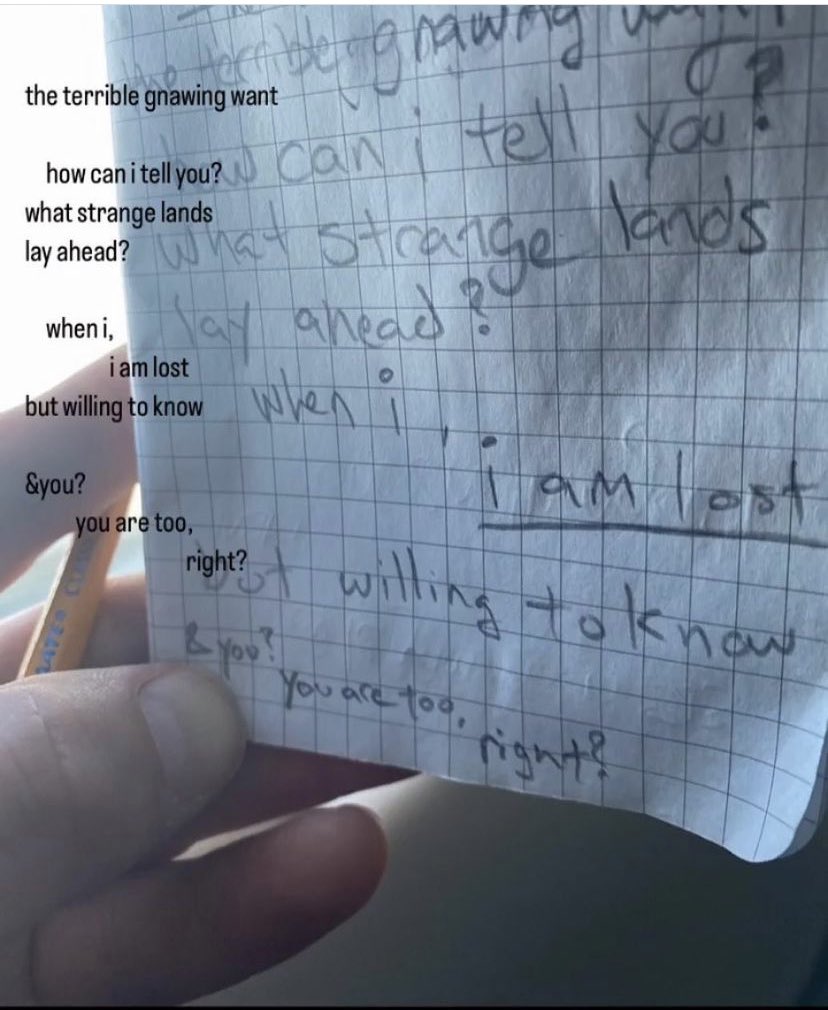 the terrible gnawing want
how can i tell you?
what strange lands
lay ahead?
when i,
i am lost
but willing to know
&you?
you are too,
right?
the terrible gnawing
how can i tell you?
what strange lands
lay ahead?
when i,
i am lost
but willing to know
& you?
you are too,
right?